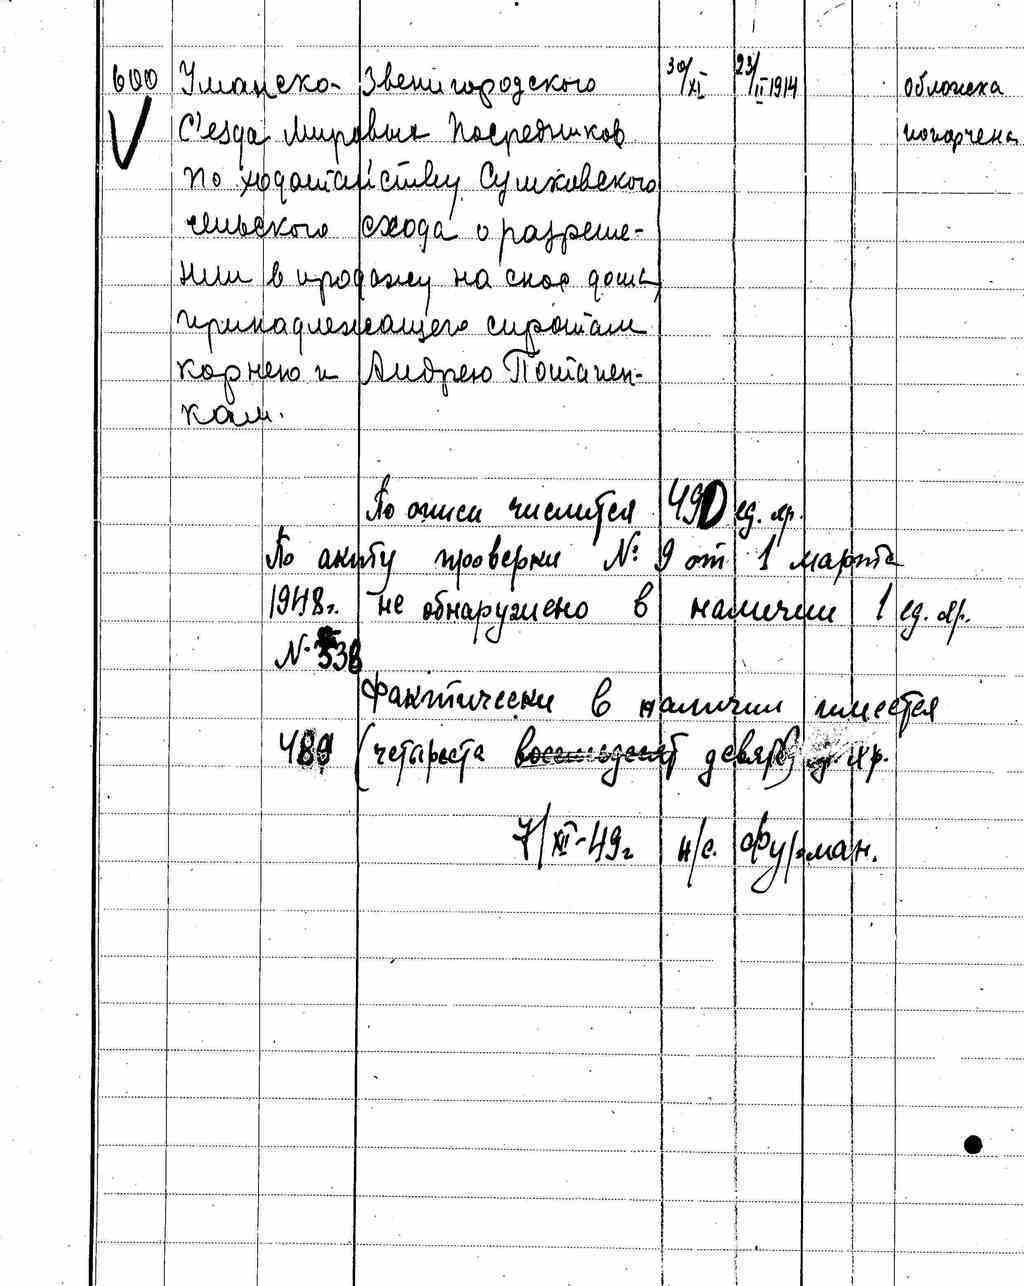 600 Уманско- Звенигородского 30/XI 23/II 1914 Обложка
С'езда Мировых Посредников испорчена
по ходатайству Сушковского
сельского схода о разреше-
нии в продажу на снос дома,
принадлежащего сиротам
Корнею и Андрею Потапен-
кам.
По описи числится 490 ед. хр.
По акту проверки № 9 от 1 марта
1948г. не обнаружено в наличии 1 ед. хр.
№ 538
Фактически в наличии имеется
489 (четыреста восемьдесят девять) ед. хр.
7/XII-49г н/с. Фурман.